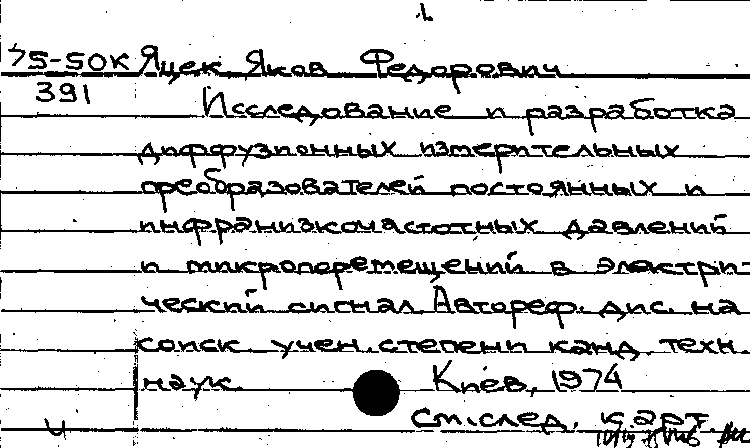 75-50К Яцек, Яков Федорович
391 Исследование и разработка
диффузионных измерительных
преобразователей постоянных и
инфранизкочастотных давлений
и микроперемещений в электри-
ческий сигнал. Автореф. дис. на
соиск. учен. степени канд. техн.
наук. Киев, 1974
ч См. след. карт.